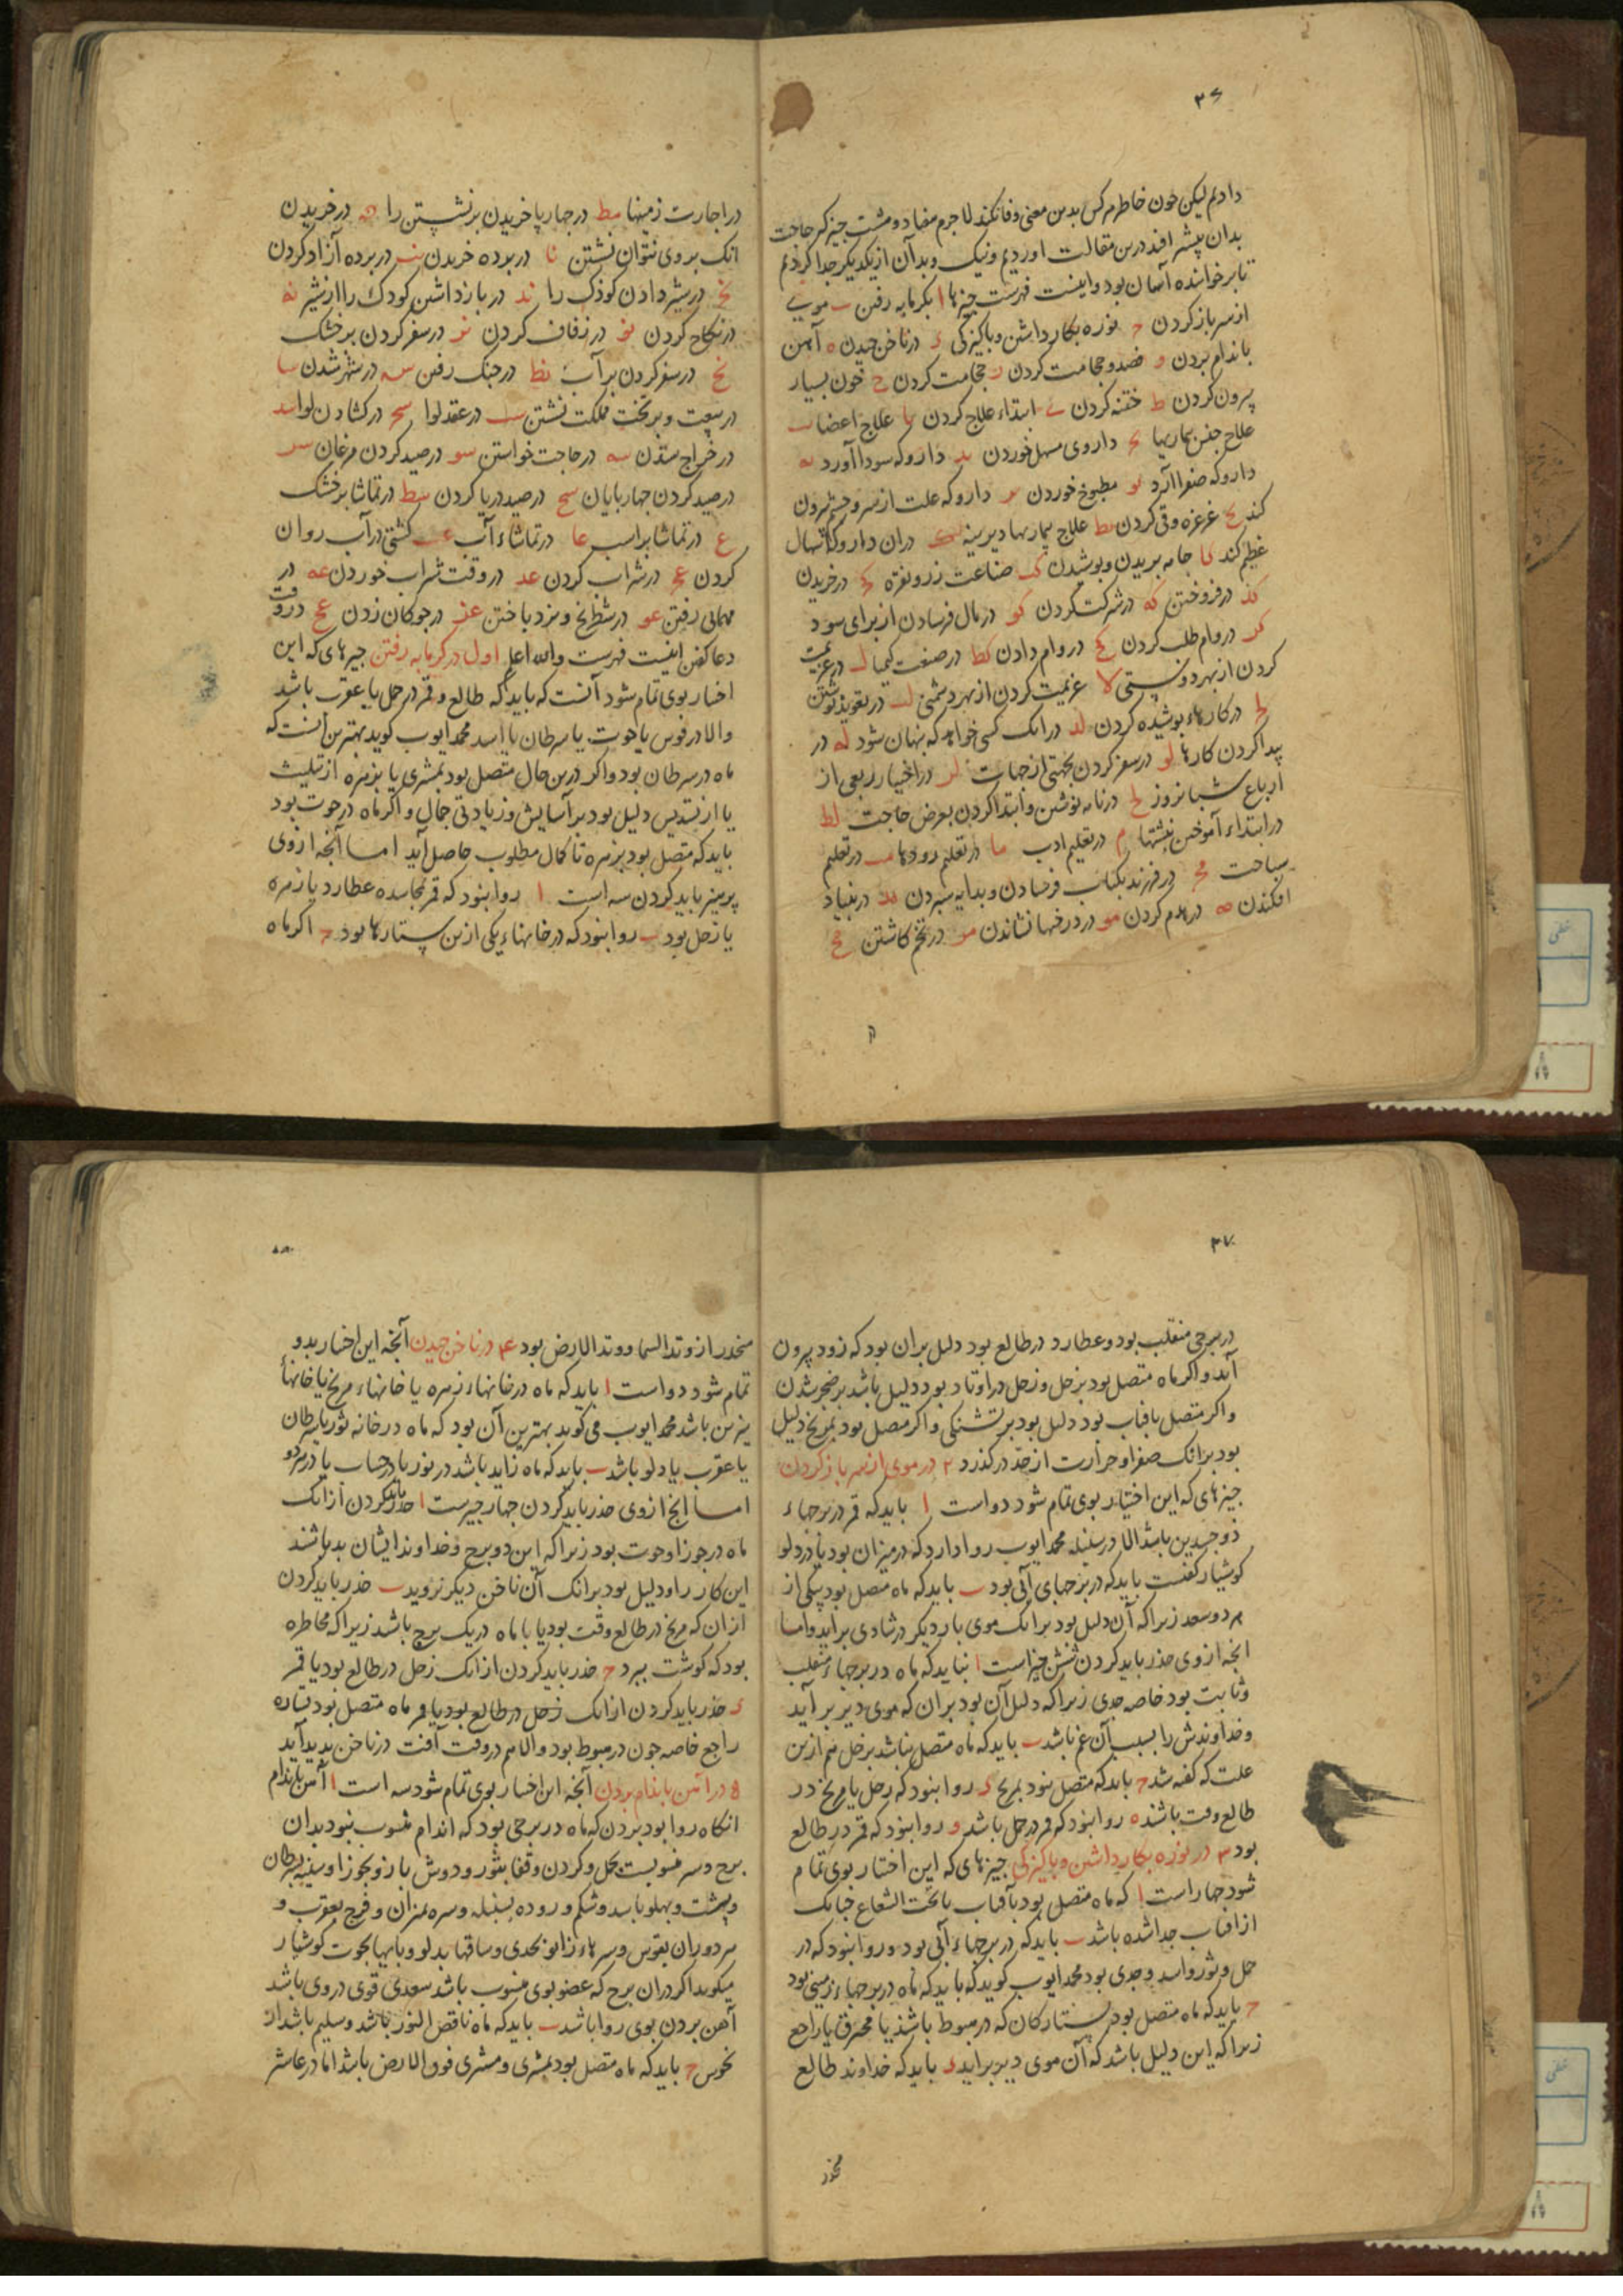 ۳۶
دادیم لیکن خون خاطر هر کس بدین معنی وفا نکند لا جرم هفتاد و هشت چیز که حاجت
بدان بیشتر افتد درین مقالت اوردیم و نیک و بد آن از یکدیکر جدا کردیم
تا بر خواننده آسان بود و اینست فهرست چیزها ا بکرمابه رفتن ب موی
از سر باز کردن ح نوره بکار داشتن و پاکیزکی د در ناخن چیدن ه آهن
باندام بردن و فصد و حجامت کردن ز حجامت کردن ح خون بسیار
بیرون کردن ط ختنه کردن ی ابتداء علاج کردن یا علاج اعضا یب
علاج جنس بیماریها یج داروی مسهل خوردن ید دارو که سودا آورد یه
دارو که صفرا آرد یو مطبوخ خوردن یز دارو که علت از سر و چشم بیرون
کند یح غرغره و قی کردن یط علاج بیماریها دیرینه ک دران دارو که اسهال
عظیم کند کا جامه بریدن و پوشیدن کب صناعت زر و نقره کج در خریدن
کد در فروختن که در شرکت کردن کو در مال فرستادن از برای سود
کز در وام طلب کردن کح در وام دادن کط در صنعت کیمیا ل در عزیمت
کردن از بهر دوستی لا عزیمت کردن از بهر دشمنی لب در تعویذ نوشتن
لج در کارهاء پوشیده کردن لد در انک کسی خواهد که پنهان شود له در
پیدا کردن کارها لو در سفر کردن بجهتی از جهات لز در اختیار ربعی از
ارباع شبانروز لح در نامه نوشتن و ابتدا کردن بعرض حاجت لط
در ابتداء آموختن پیشتها م در تعلیم ادب ما در تعلیم رودها مب در تعلیم
سباحت مج در فرزند بکتاب فرستادن و بدایه سپردن مد در بنیاد
افکندن مه در هدم کردن مو در درختها نشاندن مز در تخم کاشتن مح
در اجارت زمینها مط در چهارپا خریدن برنشستن را ن در خریدن
انک بر وی نتوان نشستن نا در برده خریدن نب در برده آزاد کردن
نج در شیر دادن کوذک را ند در باز داشتن کودک را از شیر نه
در نکاح کردن نو در زفاف کردن نز در سفر کردن بر خشک
نح در سفر کردن بر آب نط در جنک رفتن س در شهر شدن سا
در بیعت و بر تخت مملکت نشستن سب در عقد لوا سج در کشادن لوا سد
در خراج ستدن سه در حاجت خواستن سو در صید کردن مرغان سز
در صید کردن چهار پایان سح در صید دریا کردن سط در تماشا بر خشک
ع در تماشا بر اسب عا در تماشاء آب عب کشتی در آب روان
کردن عج در شراب کردن عد در وقت شراب خوردن عه در
مهمانی رفتن عو در شطرنج و نرد باختن عز در جوکان زدن عح در وقت
دعا کفتن اینست فهرست والله اعلم اول در کرمابه رفتن چیزهای که این
اختیار بوی تمام شود آنست که باید که طالع و قمر در حمل یا عقرب باشد
والا در قوس یا حوت یا سرطان یا اسد محمد ایوب کوید بهترین آنست که
ماه در سرطان بود و اکر درین حال متصل بود بمشتری یا بزهره از تثلیث
یا از تسدیس دلیل بود بر آسایش و زیادتی جمال و اکر ماه در حوت بود
باید که متصل بود بزهره تا کمال مطلوب حاصل آید اما آنچه از وی
پرهیز باید کردن سه است ا روا نبود که قمر مجاسده عطارد یا زهره
یا زحل بود ب روا نبود که در خانهاء یکی ازین ستارها بود ح اکر ماه
۳۷
در برجی منقلب بود و عطارد در طالع بود دلیل بران بود که زود بیرون
آید و اکر ماه متصل بود بزحل و زحل در اوتاد بود دلیل باشد بر ضجر شدن
و اکر متصل بافتاب بود دلیل بود بر تشنکی و اکر متصل بود بمریخ دلیل
بود بر انک صفرا و حرارت از حد در کذرد ۲ در موی از سر باز کردن
چیزهای که این اختیار بوی تمام شود دو است ا باید که قمر در برجهاء
ذو جسدین باشد الا در سنبله محمد ایوب روا دارد که در میزان بود یا در دلو
کوشیار کفتست باید که در برجهای آبی بود ب باید که ماه متصل بود بیکی از
هر دو سعد زیرا که آن دلیل بود بر انک موی بار دیکر در شادی بر اید و اما
انچه از وی حذر باید کردن شش چیز است ا نباید که ماه در برجهاء منقلب
و ثابت بود خاصه جدی زیرا که دلیل آن بود بران که موی دیر بر آید
و خداوندش را بسبب آن غم باشد ب باید که ماه متصل نباشد بزحل هم ازین
علت که کفته شد ح باید که متصل نبود بمریخ د روا نبود که زحل یا مریخ در
طالع وقت باشند ه روا نبود که قمر در حمل باشد و روا نبود که قمر در طالع
بود ۳ در نوره بکار داشتن و پاکیزکی چیزهای که این اختیار بوی تمام
شود چهار است ا که ماه متصل بود بآفتاب یا تحت الشعاع چنانک
از افتاب جدا شده باشد ب باید که در برجهاء آبی بود و روا نبود که در
حمل و ثور و اسد و جدی بود محمد ایوب کوید که باید که ماه در برجهاء زمینی بود
ح باید که ماه متصل بود بستارکان که در هبوط باشند یا محترق یا راجع
زیرا که این دلیل باشد که آن موی دیر بر اید د باید که خداوند طالع
منحدر
منحدر از وتد السما و وتد الارض بود ۴ در ناخن چیدن آنچه این اختیار بدو
تمام شود دو است ا باید که ماه در خانهاء زهره یا خانهاء مریخ یا خانهاء
نیرین باشد محمد ایوب می کوید بهترین آن بود که ماه در خانه ثور یا سرطان
یا عقرب یا دلو باشد ب باید که ماه زاید باشد در نور یا در حساب یا در هردو
اما انچ از وی حذر باید کردن چهار چیزست ا حذر باید کردن از انک
ماه در جوزا و حوت بود زیرا که این دو برج و خداوند ایشان بد باشند
این کار را و دلیل بود بر انک آن ناخن دیکر نروید ب حذر باید کردن
از ان که مریخ در طالع وقت بود یا با ماه در یک برج باشد زیرا که مخاطره
بود که کوشت ببرد ح حذر باید کردن از انک زحل در طالع بود یا قمر
د حذر باید کردن از انک زحل در طالع بود یا قمر ماه متصل بود بستاره
راجع خاصه چون در هبوط بود والا هم در وقت آفت در ناخن پدید آید
۵ در اهن باندام بردن آنچه این اختیار بوی تمام شود سه است ا آهن باندام
انکاه روا بود بردن که ماه در برجی بود که اندام منسوب نبود بدان
برج و سر منسوبست بحمل و کردن و قفا بثور و دوش بازو بجوزا و سینه بسرطان
و پشت و پهلو باسد و شکم و روده بسنبله و سره بمیزان و فرج بعقرب و
هر دو ران بقوس و سرهاء زانو بجدی و ساقها بدلو و پایها بحوت کوشیار
میکوید اکر دران برج که عضو بوی منسوب باشد سعدی قوی در وی باشد
آهن بردن بوی روا باشد ب باید که ماه ناقص النور باشد و سلیم باشد از
نحوس ح باید که ماه متصل بود بمشتری و مشتری فوق الارض باشد اما در عاشر